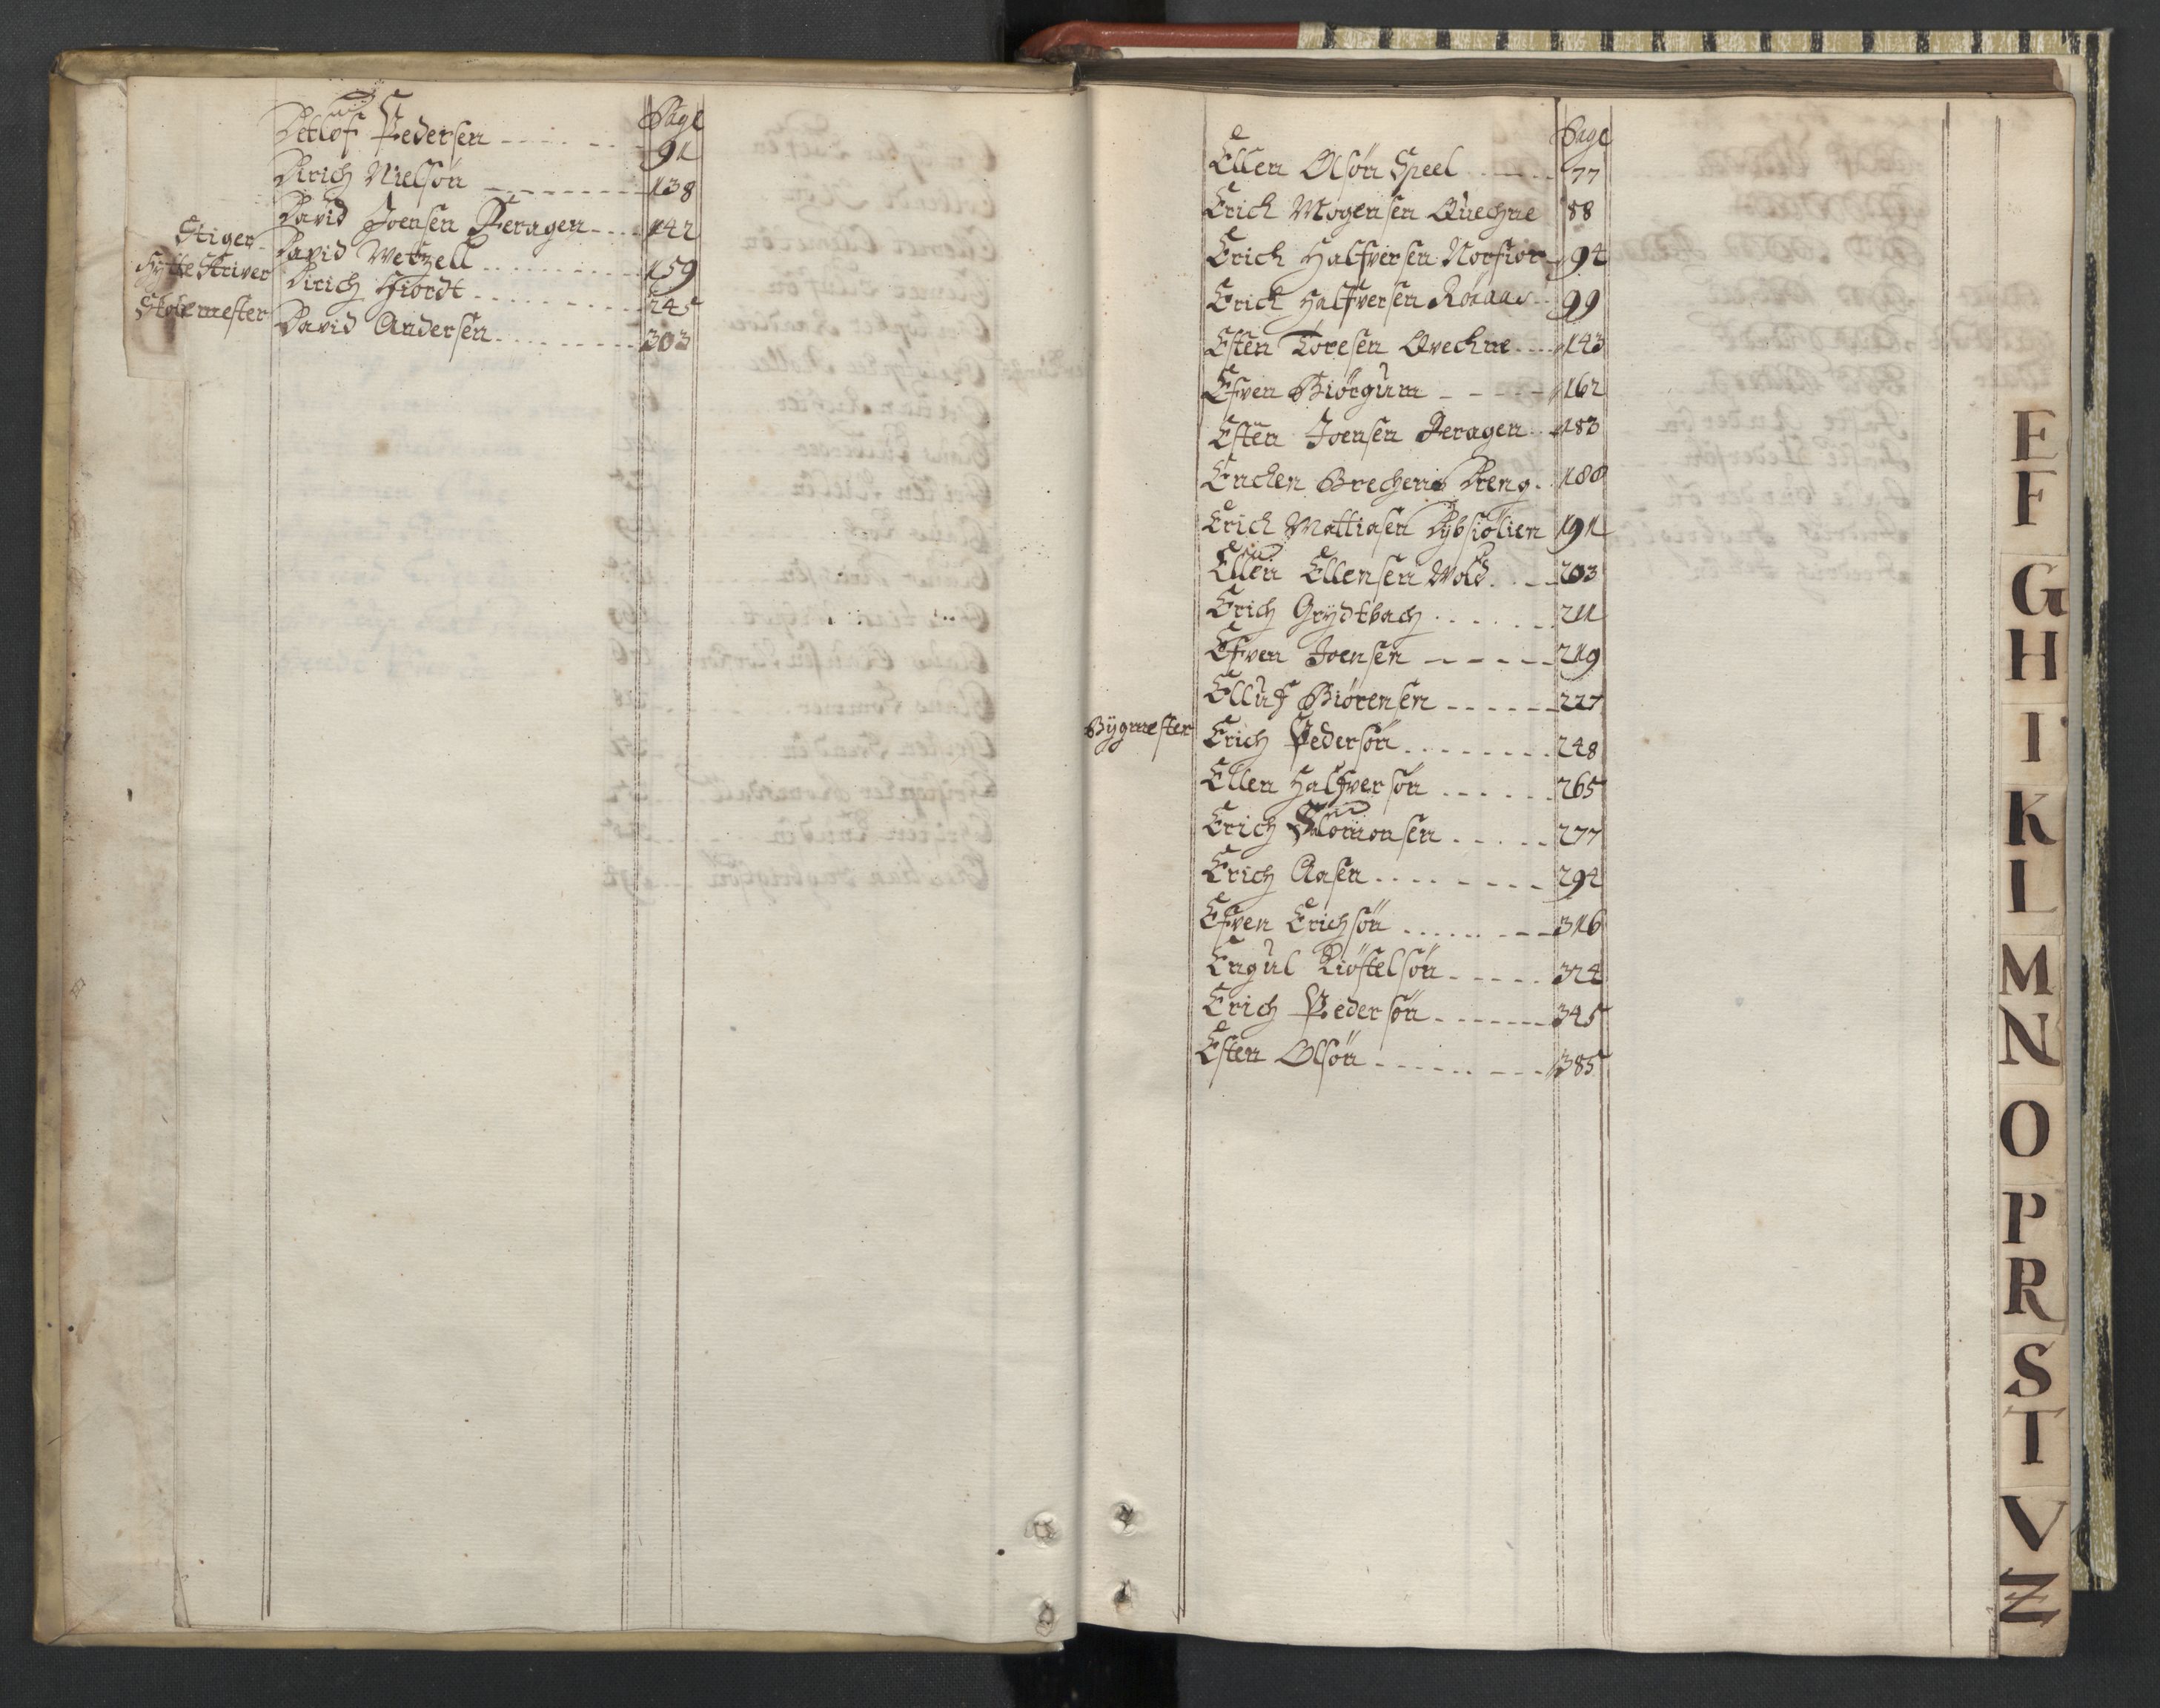 Page
Detlof Pedersen 91
Dirich Nielsön 138
David Joensen Deragen 142
Stiger David Wetzell 159
Hytteskriver Dirich Hiordt 245
David Andersen 303
Page
Ellen Olsön Speel 77
Erich Mogensen Quechne 88
Erich Halfversen 94
Erich Halfversen Röraas 99
Esten Toresen Qvechne 143
Efven Biörgum 162
Esten Joensen Deragen 183
Dreng 188
Erich Mattiasen 191
Ellen Ellensen Wold 203
Erich Grydtbach 211
Efven Joensen 219
Elluf Biörensen 227
Bÿgmester Erich Pedersön 248
Ellen Halfversön 265
Erich Salomonsen 277
Erich Aasen 294
Efven Erichsön 316
Engul Kiöstelsön 324
Erich Pedersön 345
Esten Olsön 385
E
F
G
H
I
K
L
M
N
O
P
R
S
T
V
Z